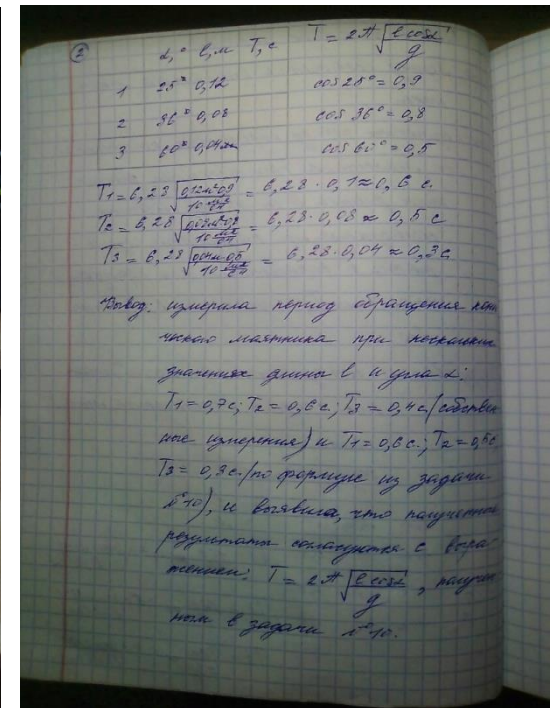 ② α,° l,м T,с T = 2π√(l cosα / g)
1 25° 0,12 cos 25° = 0,9
2 36° 0,08 cos 36° = 0,8
3 60° 0,04м cos 60° = 0,5
T1 = 6,28 √(0,12м·0,9 / 10 м/с²) = 6,28 · 0,1 ≈ 0,6 с.
T2 = 6,28 √(0,08м·0,8 / 10 м/с²) = 6,28 · 0,08 ≈ 0,5 с
T3 = 6,28 √(0,04м·0,5 / 10 м/с²) = 6,28 · 0,04 ≈ 0,3 с
Вывод: измерила период обращения кони-
ческого маятника при нескольких
значениях длины l и угла α:
T1 = 0,7с; T2 = 0,6 с; T3 = 0,4с (собствен-
ные измерения) и T1 = 0,6с; T2 = 0,5с
T3 = 0,3с. (по формуле из задачи
№10), и выявила, что полученные
результаты согласуются с выра-
жением: T = 2π√(l cosα / g), получен-
ным в задачи №10.